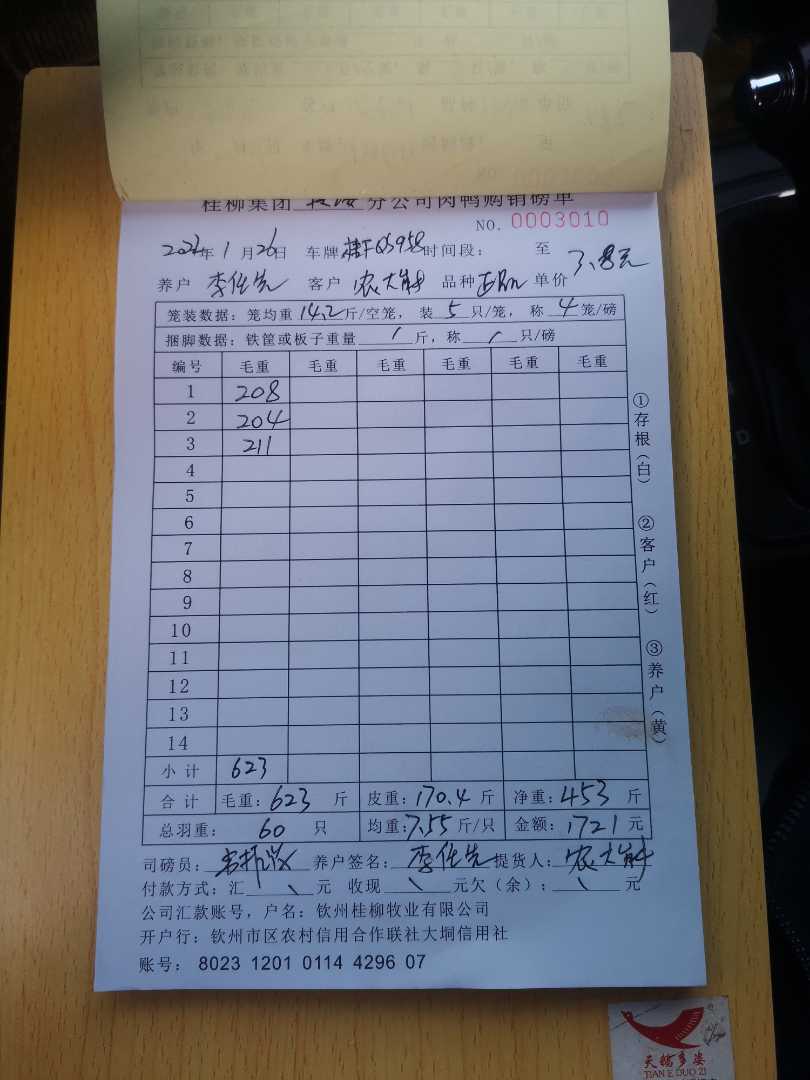 桂柳集团 分公司肉鸭购销磅单
NO. 0003010
2022年1月26日 车牌 桂F05958 时间段: 至
养户 李任先 客户 农大 品种 单价 3.8元
笼装数据: 笼均重 14.2 斤/空笼, 装 5 只/笼, 称 4 笼/磅
捆脚数据: 铁筐或板子重量 / 斤, 称 / 只/磅
编号 毛重 毛重 毛重 毛重 毛重 毛重
1 208
2 204
3 211
4
5
6
7
8
9
10
11
12
13
14
小计 623
合计 毛重: 623 斤 皮重: 170.4 斤 净重: 453 斤
总羽重: 60 只 均重: 7.55 斤/只 金额: 1721 元
司磅员: 养户签名: 李任先 提货人: 农大
付款方式: 汇 \ 元 收现 \ 元欠(余): \ 元
公司汇款账号, 户名: 钦州桂柳牧业有限公司
开户行: 钦州市区农村信用合作联社大垌信用社
账号: 8023 1201 0114 4296 07
①存根(白) ②客户(红) ③养户(黄)
天鹅多姿
TIAN E DUO ZI